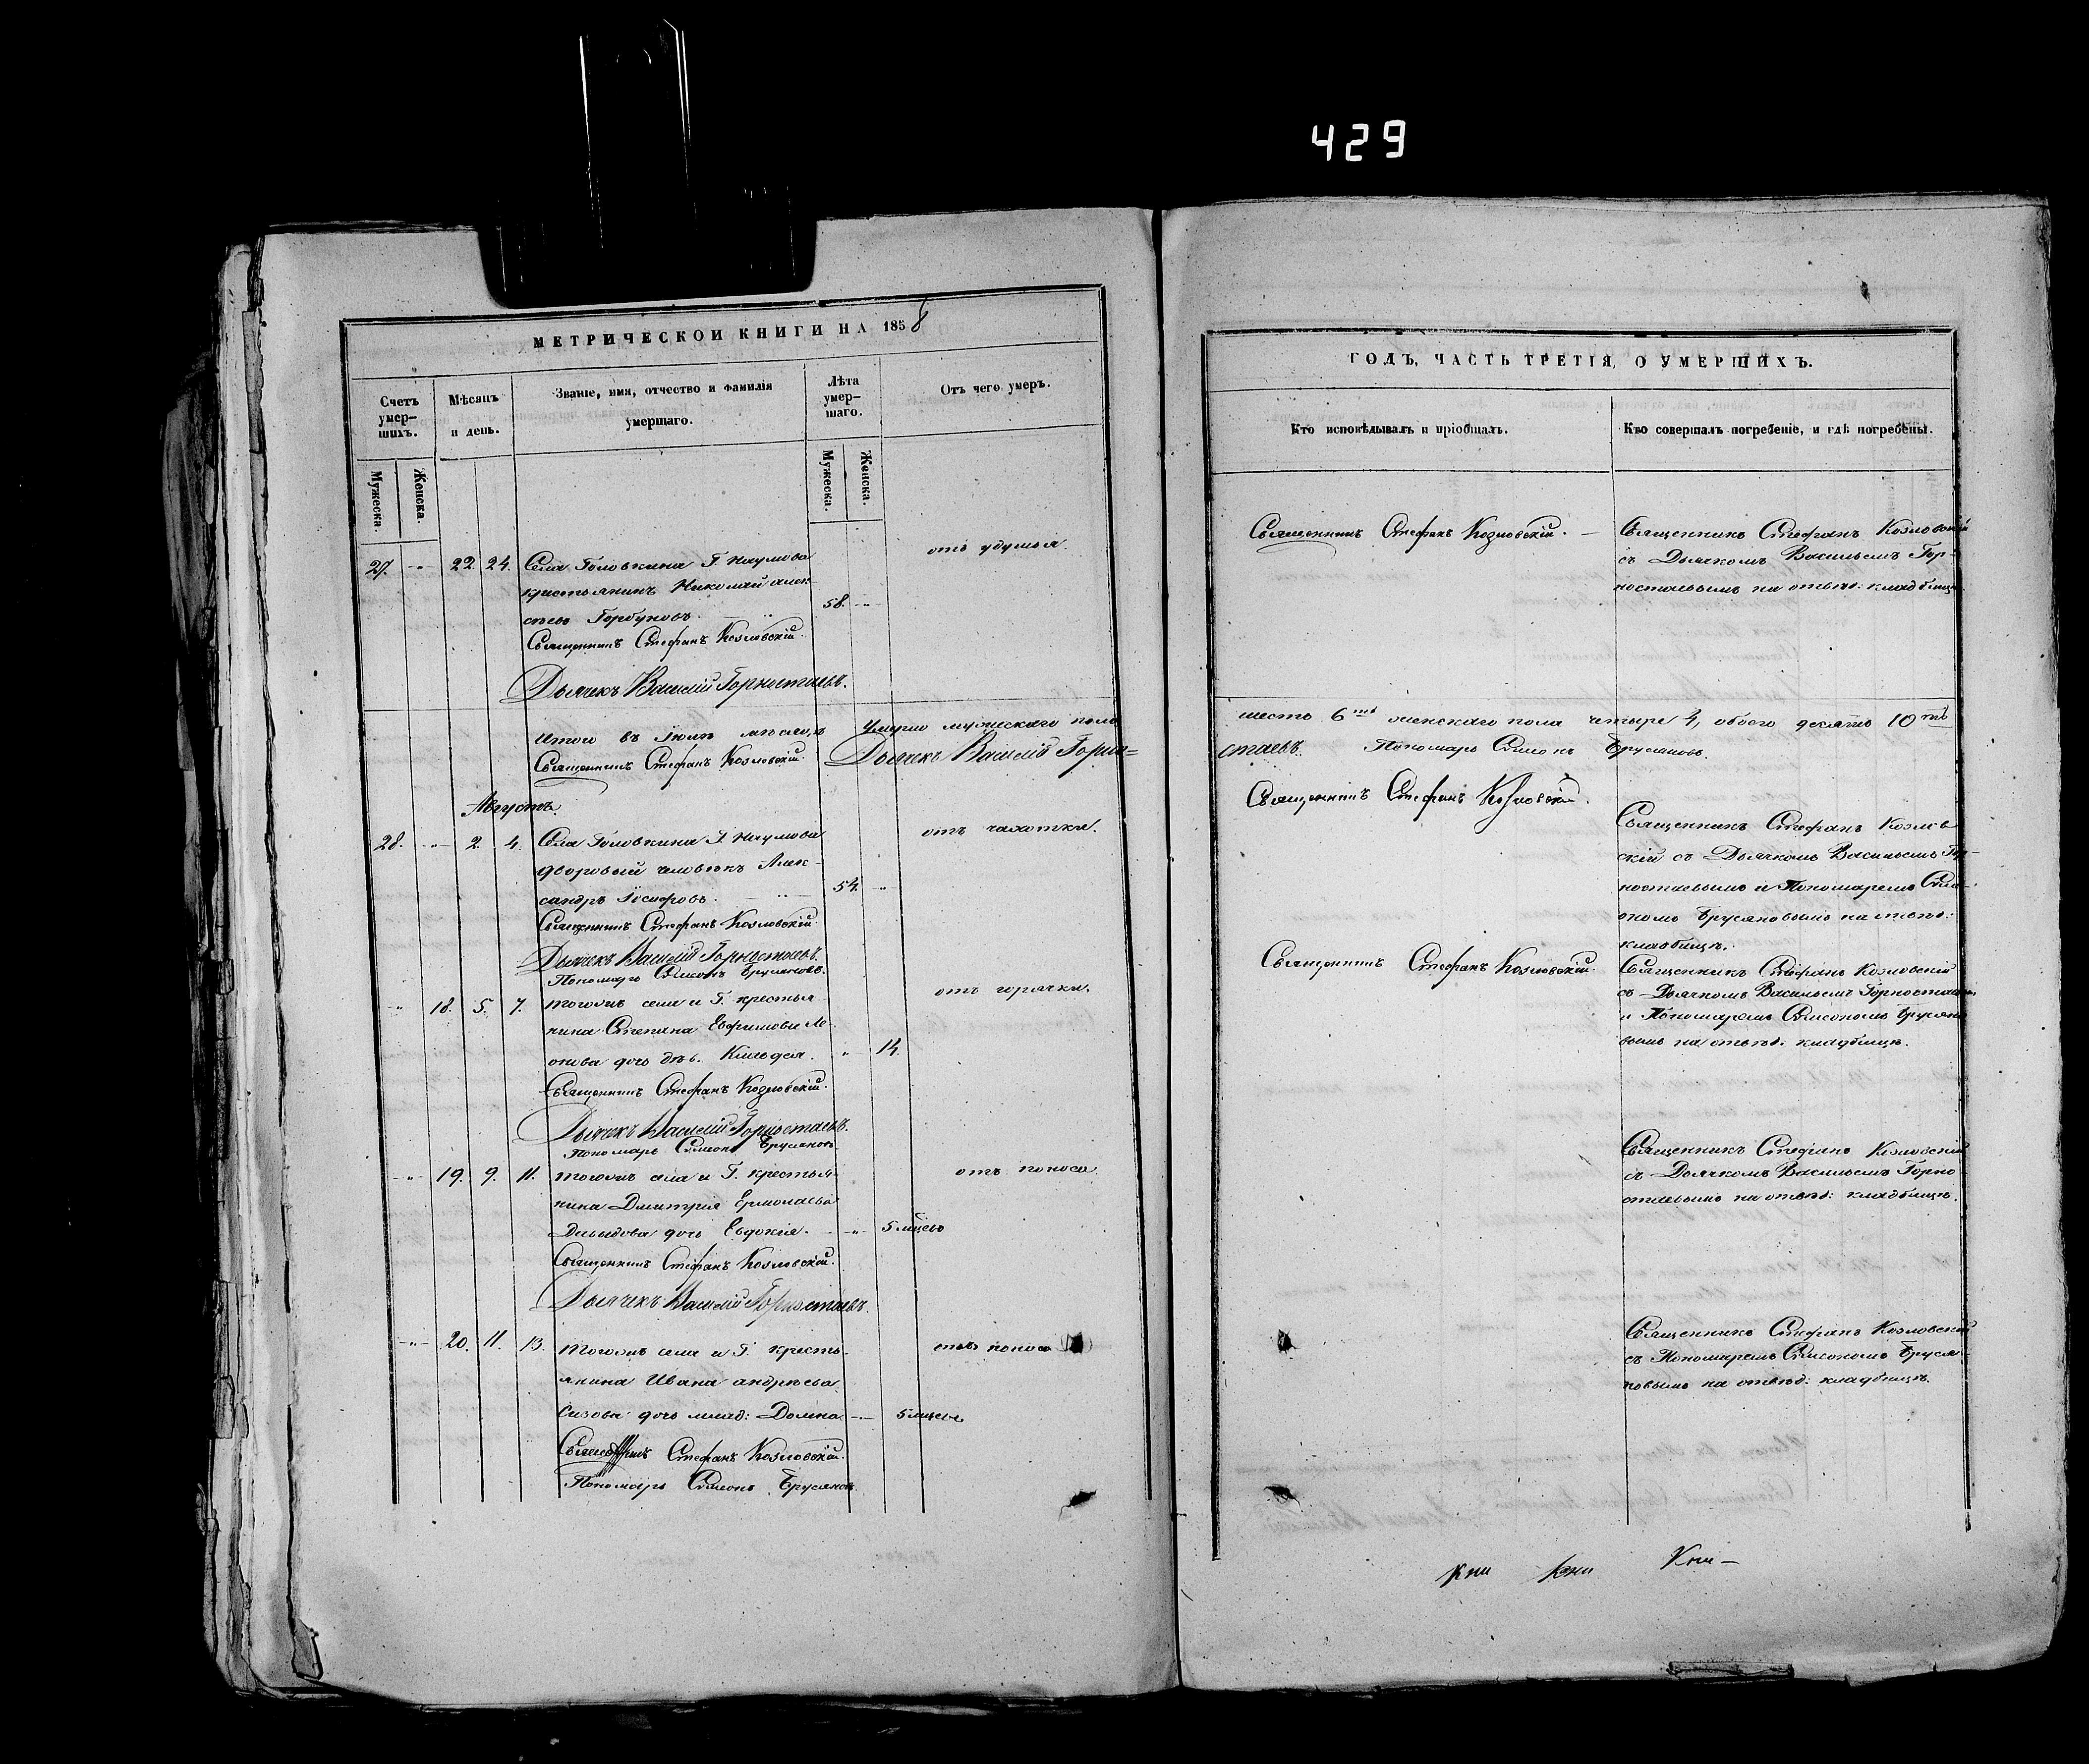 429
МЕТРИЧЕСКОЙ КНИГИ НА 1858
Счетъ умер-
шихъ.
Мѣсяцъ
и день.
Званіе, имя, отчество и фамилія
умершаго.
Лѣта
умер-
шаго.
Отъ чего умеръ.
Мужеска.
Женска.
Мужеска.
Женска.
27. -„- 22. 24. Села Головкина Г. Наумова
отъ удушья.
крестьянинъ Николай Алек
сѣевъ Горбуновъ. 58. -„-
Священникъ Стефанъ Козловскій.
Дьячекъ Василій Горностаевъ.
Итого въ Іюлѣ мѣсяцѣ умерло мужескаго пола
Священникъ Стефанъ Козловскій. Дьячекъ Василій Горно=
Августъ.
28. -„- 2. 4. Села Головкина Г. Наумова
отъ чахотки.
дворовый человѣкъ Алек-
сандръ Іосифовъ. 54. „
Священникъ Стефанъ Козловскій.
Дьячекъ Василій Горностаевъ.
Пономарь Симеонъ Брусяновъ.
-„- 18. 5. 7. тогожъ села и Г. крестья
отъ горячки.
нина Степана Евфимова Ле-
онова дочь дѣв. „ 14.
Священникъ Стефанъ Козловскій.
Дьячекъ Василій Горностаевъ.
Пономарь Симеонъ Брусяновъ
-„- 19. 9. 11. тогожъ села и Г. крестья-
отъ поноса.
нина Дмитрія Ермолаева
Давыдова дочь Евдокія. -„- 5 мѣсяц
Священникъ Стефанъ Козловскій.
Дьячекъ Василій Горностаевъ.
-„- 20. 11. 13. тогожъ села и Г. кресть-
отъ поноса
янина Ивана Андреева
Сизова дочь млад: Домна -„- 5 мѣсяц
Священникъ Стефанъ Козловскій.
Пономарь Симеонъ Брусяновъ.
ГОДЪ, ЧАСТЬ ТРЕТІЯ, О УМЕРШИХЪ.
Кто исповѣдывалъ и пріобщалъ.
Кто совершалъ погребеніе, и гдѣ погребены.
Священникъ Стефанъ Козловскій. —
Священникъ Стефанъ Козловскій
съ Дьячкомъ Васильемъ Гор-
ностаевымъ на отвед: кладбищѣ
шесть 6ть женскаго пола четыре 4, обоего десять 10ть
стаевъ. Пономарь Симеонъ Брусяновъ.
Священникъ Стефанъ Козловскій.
Священникъ Стефанъ Козлов
скій съ Дьячкомъ Васильемъ Гор-
ностаевымъ и Пономаремъ Симе-
ономъ Брусяновымъ на отвед:
кладбищѣ.
Священникъ Стефанъ Козловскій.
Священникъ Стефанъ Козловскій
съ Дьячкомъ Васильемъ Горностаевымъ
и Пономаремъ Симеономъ Брусяно
вымъ на отвед: кладбищѣ.
Священникъ Стефанъ Козловскій
съ Дьячкомъ Васильемъ Горно
стаевымъ на отвед: кладбищѣ.
Священникъ Стефанъ Козловскій
съ Пономаремъ Симеономъ Бруся-
новымъ на отвед: кладбищѣ.
кни кни Кни —